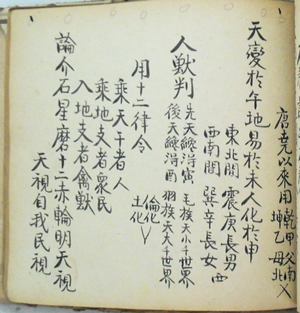 唐堯以來用 乾甲父南
坤乙母北
天變於午地易於未人化於申
東北閒 震庚長男
西南閒 巽辛長女 西
人獸判 先天經消寅 毛族天小千世界
後天經消酉 羽族天大千世界
用十二律令 倫化
土化
乘天干者人
乘地支者衆民
入地支者禽獸
論介石星磨十二赤輪明天視
天視自我民視